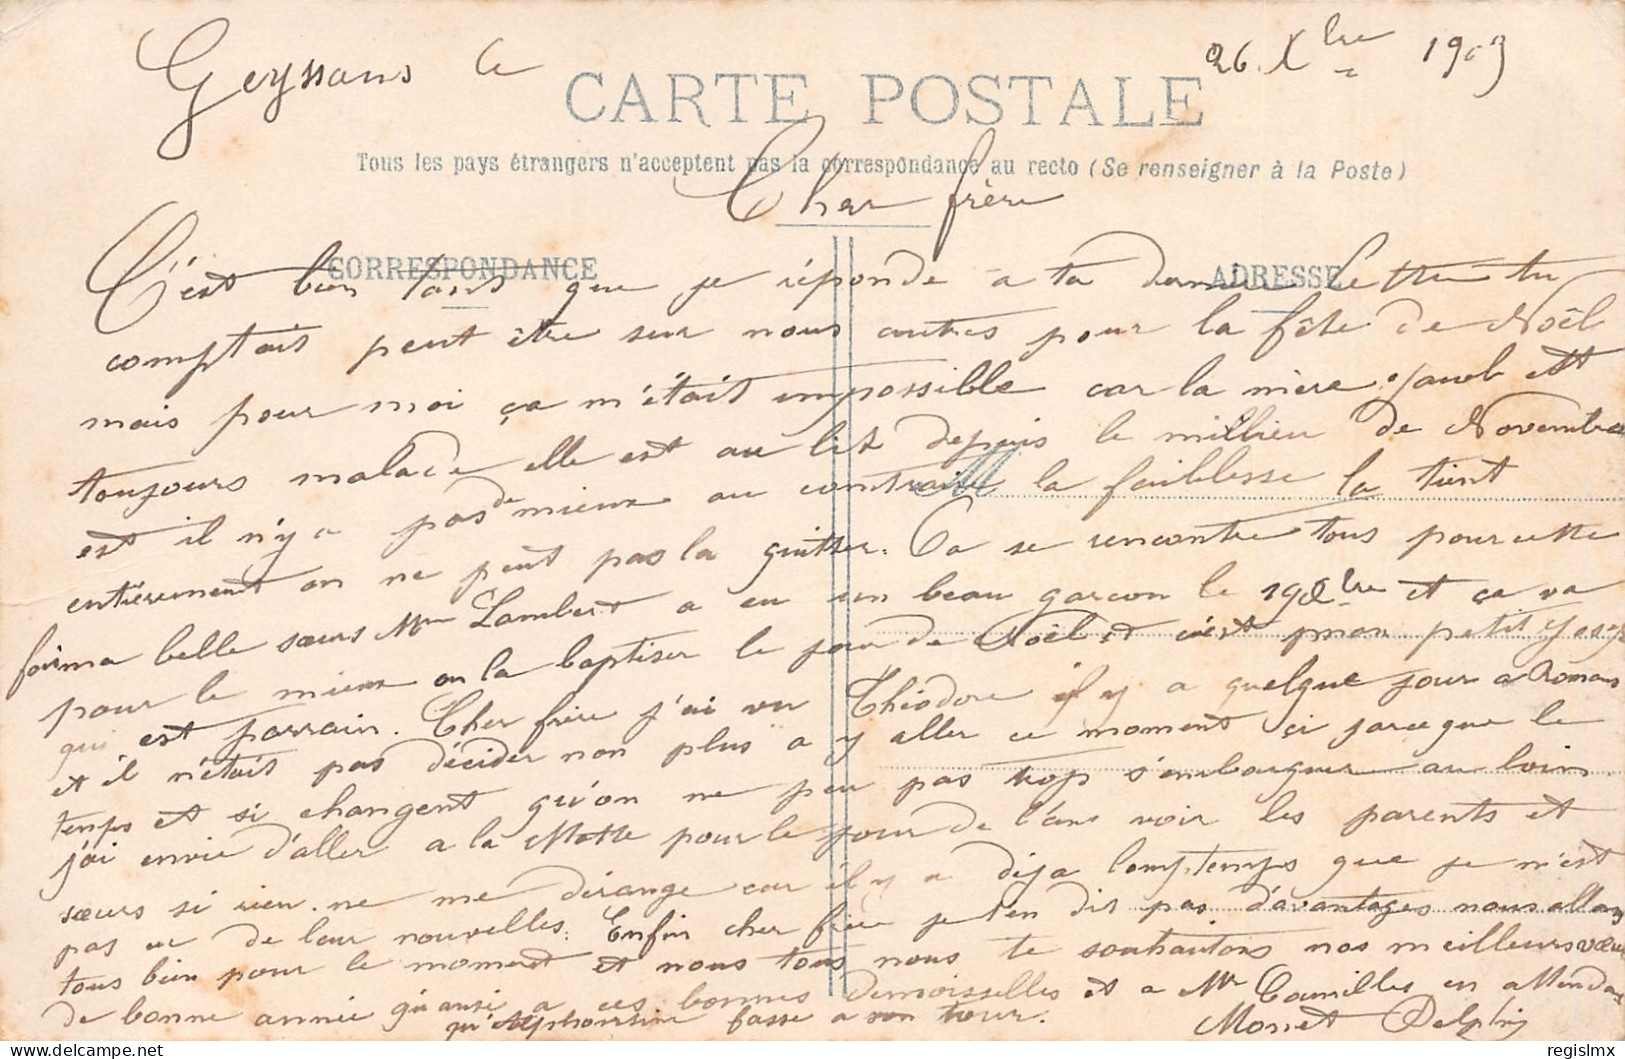 Geyssans le 26 Xbre 1903
CARTE POSTALE
Tous les pays étrangers n'acceptent pas la correspondance au recto (Se renseigner à la Poste)
Cher frère
CORRESPONDANCE ADRESSE
C'est bien tard que je réponde a ta dernière lettre tu
comptais peut être sur nous autres pour la fête de Noël
mais pour moi ça m'était impossible car la mère Jacob est
toujours malade elle est au lit depuis le millieu de Novembre
est il n'y a pas de mieux au contraire la faiblesse la tient
entièrement on ne peut pas la quitter. Ca se rencontre tous pour cette
foi ma belle sœurs Mme Lambert a eu un beau garcon le 19 Xbre et ça va
pour le mieux on la baptiser le jour de Noël et c'est mon petit
qui est parrain. Cher frère j'ai vu Théodore il y a quelque jour a Romans
et il n'était pas décider non plus a y aller ce moment çi parceque le
temps et si changent qu'on ne peu pas trop s'embarquer au loin.
j'ai envie d'aller a la Motte pour le jour de l'ans voir les parents et
sœurs si rien ne me dérange car il y a deja lomptemps que je n'est
pas ue de leur nouvelles. Enfin cher frère je t'en dis pas d'avantages nous allons
tous bien pour le moment et nous tous nous te souhaitons nos meilleurs vœux
de bonne année qu'ausi a ces bonnes demoisselles et a Mr Camilles en attendant
qu'Alphonsine fasse a son tour. Monnet Delphin
regislmx